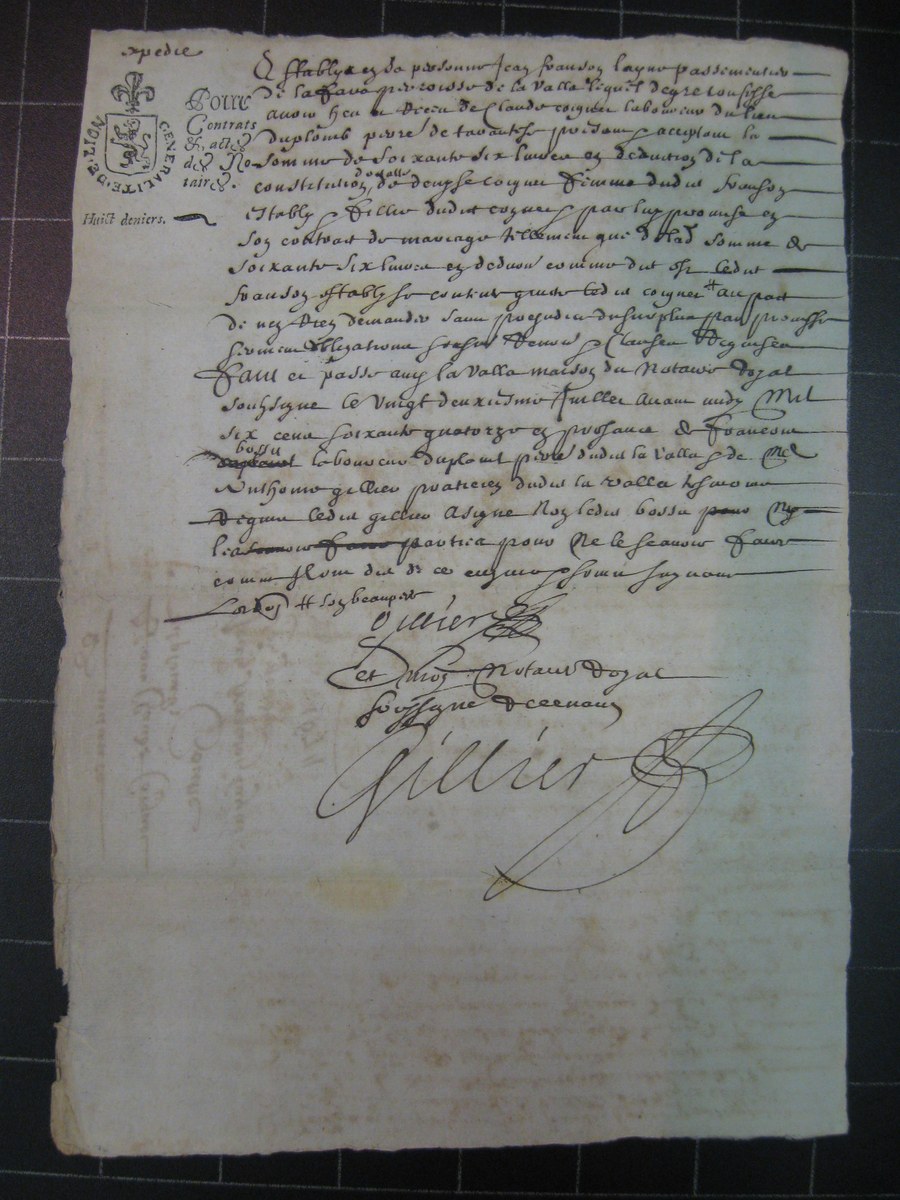 expedie
GENERALITÉ·DE·LION
Pour
Contrats
& actes
des No-
taires.
Huict deniers.
Estably en sa personne Jean franson layne passementier
de la fave parroisse de la Valla lequel de gre confesse
avoir heu et Receu de Claude coignet laboureur du lieu
duplomb pierre de tarentese present acceptant la
somme de soixante six livres en deduction de la
constitution dotalle de denyse coignet femme dudit franson
estably fillie dudit coignet par luy promise en
son contrait de mariage tellement que de lad somme de
soixante six livres en deduon comme dit est ledit
franson estably se contente quitte ledit coignet # au pact
de n'en Rien demander sans prejudice du surplus par promesse
serment obligations ses biens Renon Clauses Requises
faict et passe audit la Valla maison du Notaire Royal
soubsigne le vingt deuxiesme Juillet avant midy Mil
six cent soixante quatorze en presence de francois
bossu
laboureur duplomb pierre dudit la Valla de Me
Anthoine gillier praticien dudit la Valla tesmoins
Requis ledit gillier a signe Non ledit bossu ny
les parties pour Ne le scavoir faire
comme ils ont dit de ce enquis et sommes
# son beaupere
Gillier
et Moy Notaire Royal
soussigne Recevant
Gillier